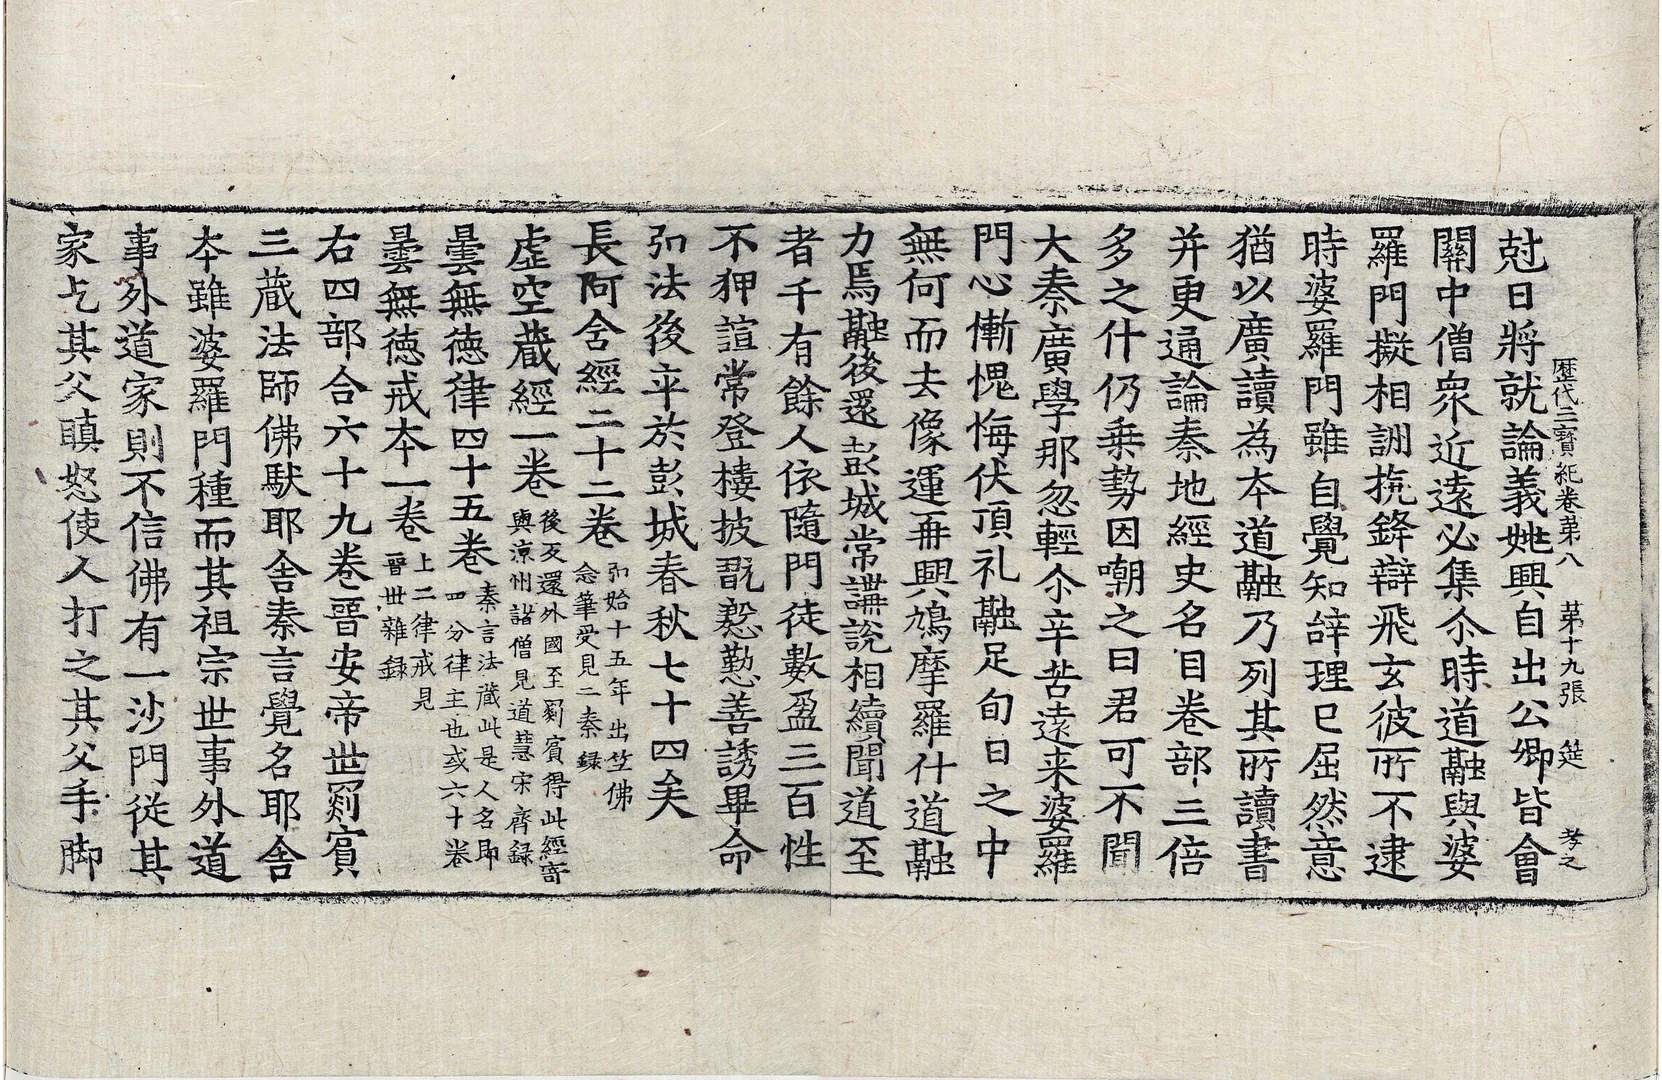 歷代三寶紀卷第八　第十九張　筵　考之
尅日將就論義姚興自出公卿皆會
關中僧衆近遠必集尒時道融與婆
羅門擬相詶挩鋒辯飛玄彼所不逮
時婆羅門雖自覺知辝理已屈然意
猶以廣讀為夲道融乃列其所讀書
并更通論秦地經史名目卷部三倍
多之什仍乗勢因嘲之曰君可不聞
大秦廣學那忽輕尒辛苦遠来婆羅
門心慚愧悔伏頂礼融足旬日之中
無何而去像運再興鳩摩羅什道融
力焉融後還彭城常講說相續聞道至
者千有餘人依隨門徒數盈三百性
不狎諠常登樓披翫慇懃善誘畢命
弘法後卒於彭城春秋七十四矣
長阿含經二十二卷 弘始十五年出竺佛
念筆受見二秦録
虛空藏經一卷 後更還外國至罽賓得此經寄
與涼州諸僧見道慧宋齊録
曇無德律四十五卷 秦言法藏此是人名即
四分律主也或六十卷
曇無德戒夲一卷 上二律戒見
晉世雜録
右四部合六十九卷晉安帝世罽賓
三藏法師佛馱耶舍秦言覺名耶舍
夲雖婆羅門種而其祖宗世事外道
事外道家則不信佛有一沙門從其
家乞其父瞋怒使人打之其父手脚